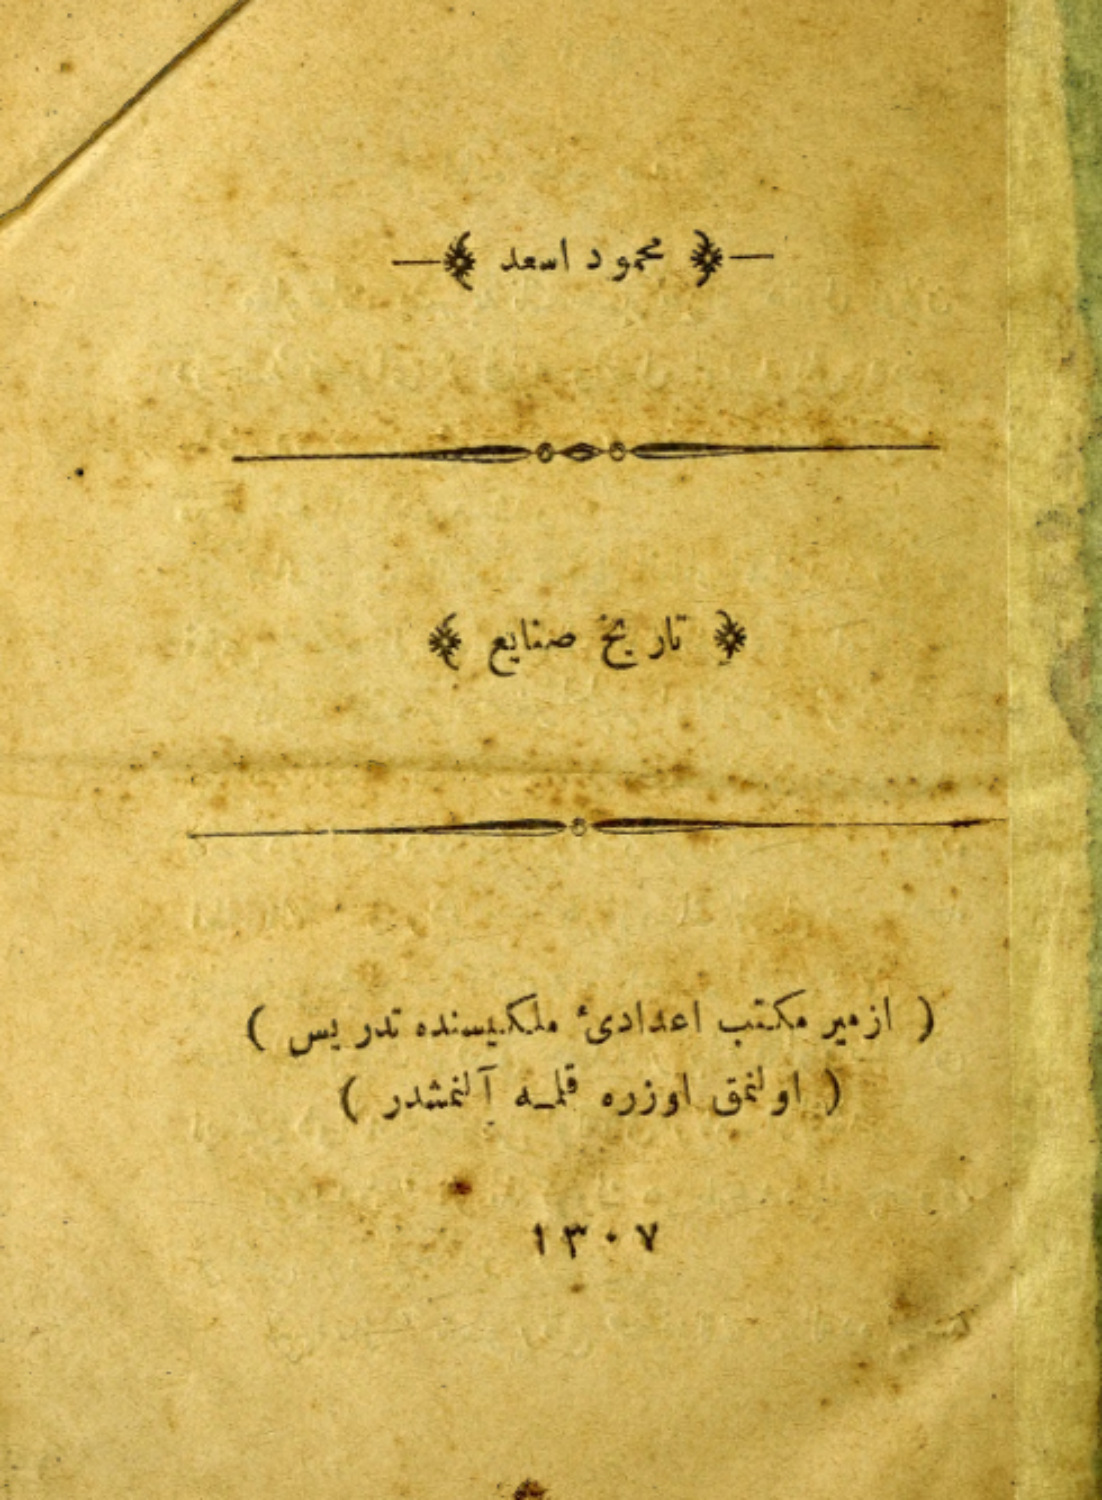 محمود اسعد
تاريخ صنايع
( ازمير مكتب اعدادئ ملكيسنده تدريس )
( اولنمق اوزره قلمه آلنمشدر )
١٣٠٧